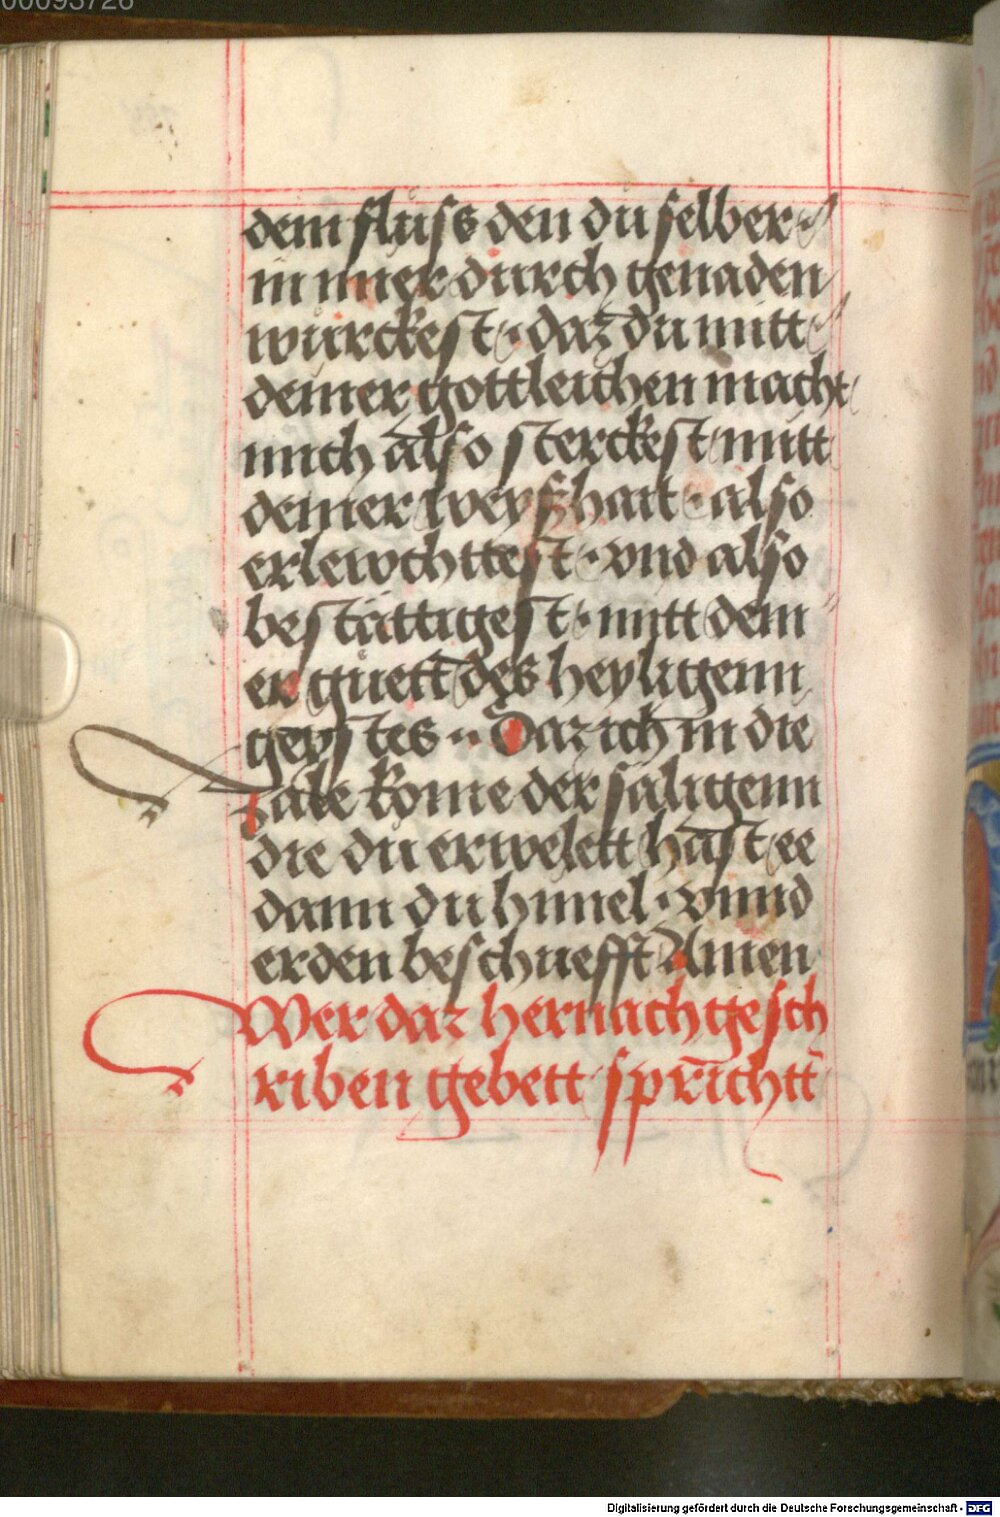 00093726
dem fluss den du selber
in miler durch genaden
würckest · daz du mitt
deiner gottleichen macht
mich also sterckest mitt
deiner weyßhait · also
erlewchttest · vnd also
bestättigest · mitt dem
er guett des heyligenn
geystes ·· Daz ich in die
zale kome der säligenn
die du erwelett hast ee
dann du himel · vnnd
erden beschuefft Amen
Wer daz hernach gesch
riben gebett sprichtt
Digitalisierung gefördert durch die Deutsche Forschungsgemeinschaft - DFG